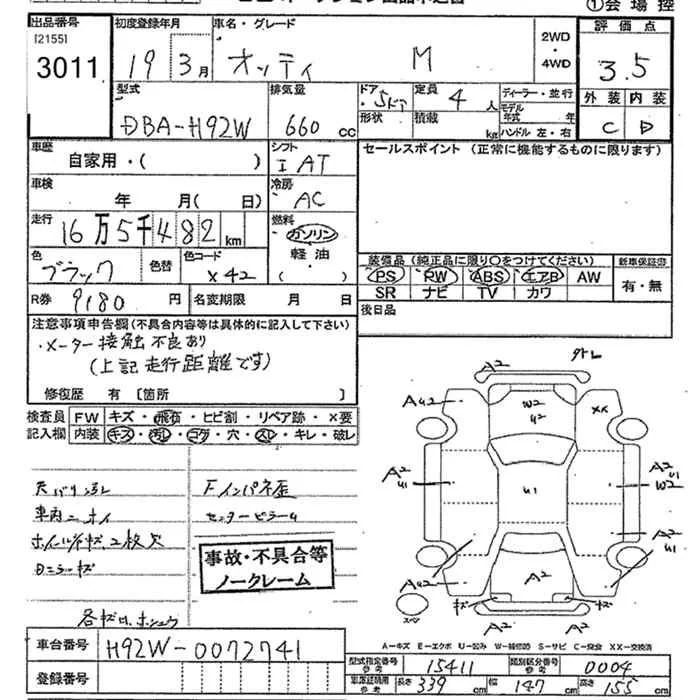 ①会場控
出品番号 初度登録年月 車名・グレード 2WD・4WD 評価点
[2155]
3011 19 3月 オッティ M 3.5
型式 排気量 ドア 5ドア 定員 4人 ディーラー・並行 外装 内装
DBA-H92W 660 cc 形状 積載 kg モデル年式 年 ハンドル 左・右 C D
車歴 自家用・( ) シフト I AT セールスポイント (正常に機能するものに限ります)
車検 年 月( 日) 冷房 AC
走行 16万5千482 km 燃料 ガソリン
軽油
( )
色 ブラック 色替 色コード X42
装備品 (純正品に限り○をつけてください) 新車保証書
PS PW ABS エアB AW 有・無
SR ナビ TV カワ
R券 9180 円 名変期限 月 日 後日品
注意事項申告欄(不具合内容等は具体的に記入して下さい)
・メーター接触不良あり
(上記走行距離です)
修復歴 有 [箇所 ]
検査員記入欄 FW キズ・飛石・ヒビ割・リペア跡・X要
内装 キズ・汚レ・コゲ・穴・スレ・キレ・破レ
天バリ汚レ Fインパネ歪
車内ニオイ センターピラーU
事故・不具合等
ノークレーム
A2
A2
A U2
W2
U2
XX
A2
U1
U1
A2
U1
W2
A2
U1
A U2
A2
キズ
キズ
A2
A2
スペア
A-キズ E-エクボ U-凹み W-補修跡 S-サビ C-腐食 XX-交換済
車台番号 H92W-0072741
登録番号
型式指定番号 参考 15411 類別区分番号 参考 0004
車庫証明用 参考 長さ 339 cm 幅 147 cm 高さ 155 cm